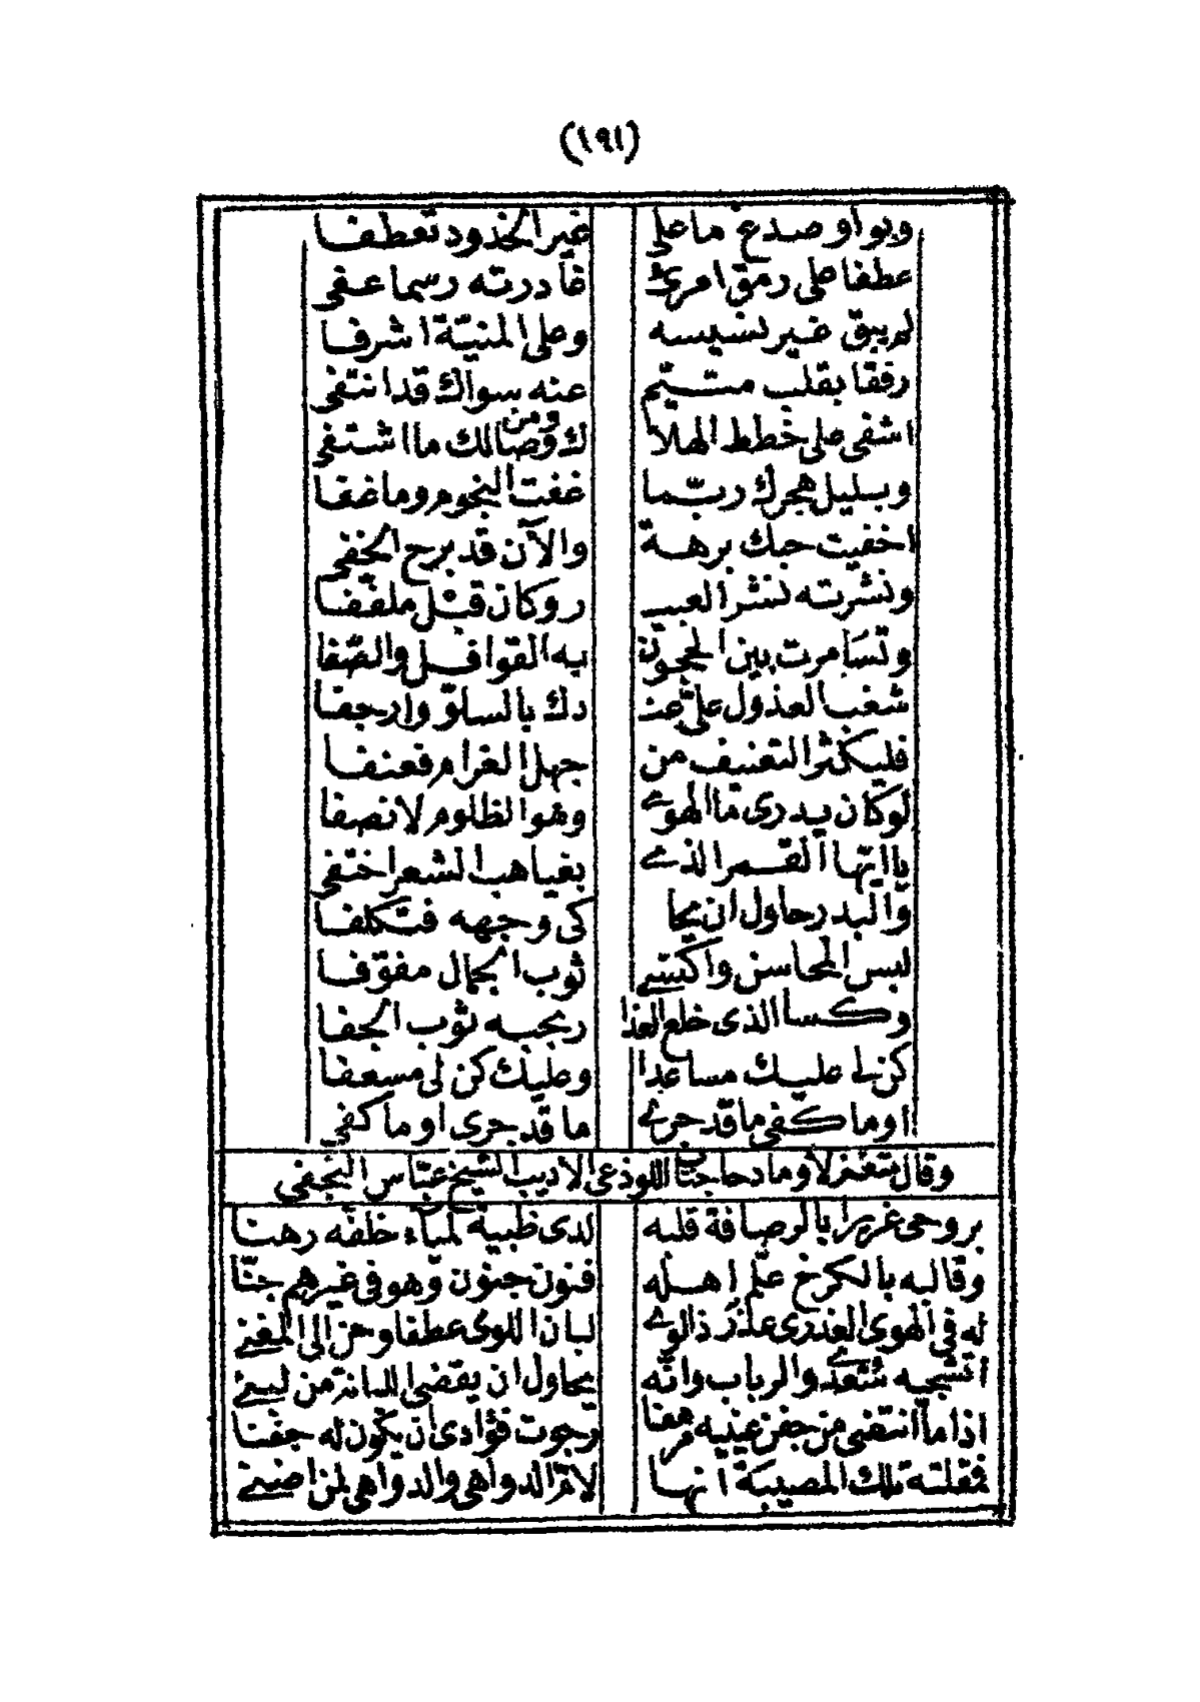 (١٩١)
وبواو صدغ ما على غير الخدود تعطفا
عطفا على رمق امرئ غادرته رسما عفى
لم يبق غير نسيسه وعلى المنيّة اشرفا
رفقا بقلب متيّم عنه سواك قد انتفى
اشفى على خطط الهلا ك ومن وصالك ما اشتفى
وبليل هجرك ربّما غفت النجوم وما غفا
اخفيت حبك برهة والآن قد برح الخفى
ونشرته نشر العبيـ ـر وكان قبل ملففا
وتسامرت بين الحجون به القوافل والصّفا
شغب العذول عليّ عنـ ـدك بالسلوّ وارجفا
فليكثر التعنيف من جهل الغرام فعنفا
لو كان يدرى ما الهوى وهو الظلوم لانصفا
يا ايّها القمر الذى بغياهب الشعر اختفى
والبدر حاول ان يحا كى وجهه فتكلفا
لبس المحاسن واكتسى ثوب الجمال مفوّفا
وكسا الذى خلع العذا ر بحبه ثوب الجفا
كن لى عليك مساعدا وعليك كن لى مسعفا
او ما كفى ما قد جرى ما قد جرى او ما كفى
وقال متغزلا وما دحا جناب اللوذعى الاديب الشيخ عبّاس النجفى
بروحى غريرا بالرصافة قلبه لدى ظبية لمياء خلفه رهنا
وقالبه بالكرخ علّم اهله فنون جنون وهو فى غيرهم جنّا
له فى الهوى العذرى عذر ذا لوى لبان اللوى عطفا وحن الى المغنى
اتشجيه سعدى والرباب وانّه يحاول ان يقضى اللبانة من لبنى
اذا ما انتضى من جفن عينيه مرهفا رجوت فؤادى ان يكون له جفنا
فمقلته تلك المصيبة انها لامّ الدواهى والدواهى لمن اضنى